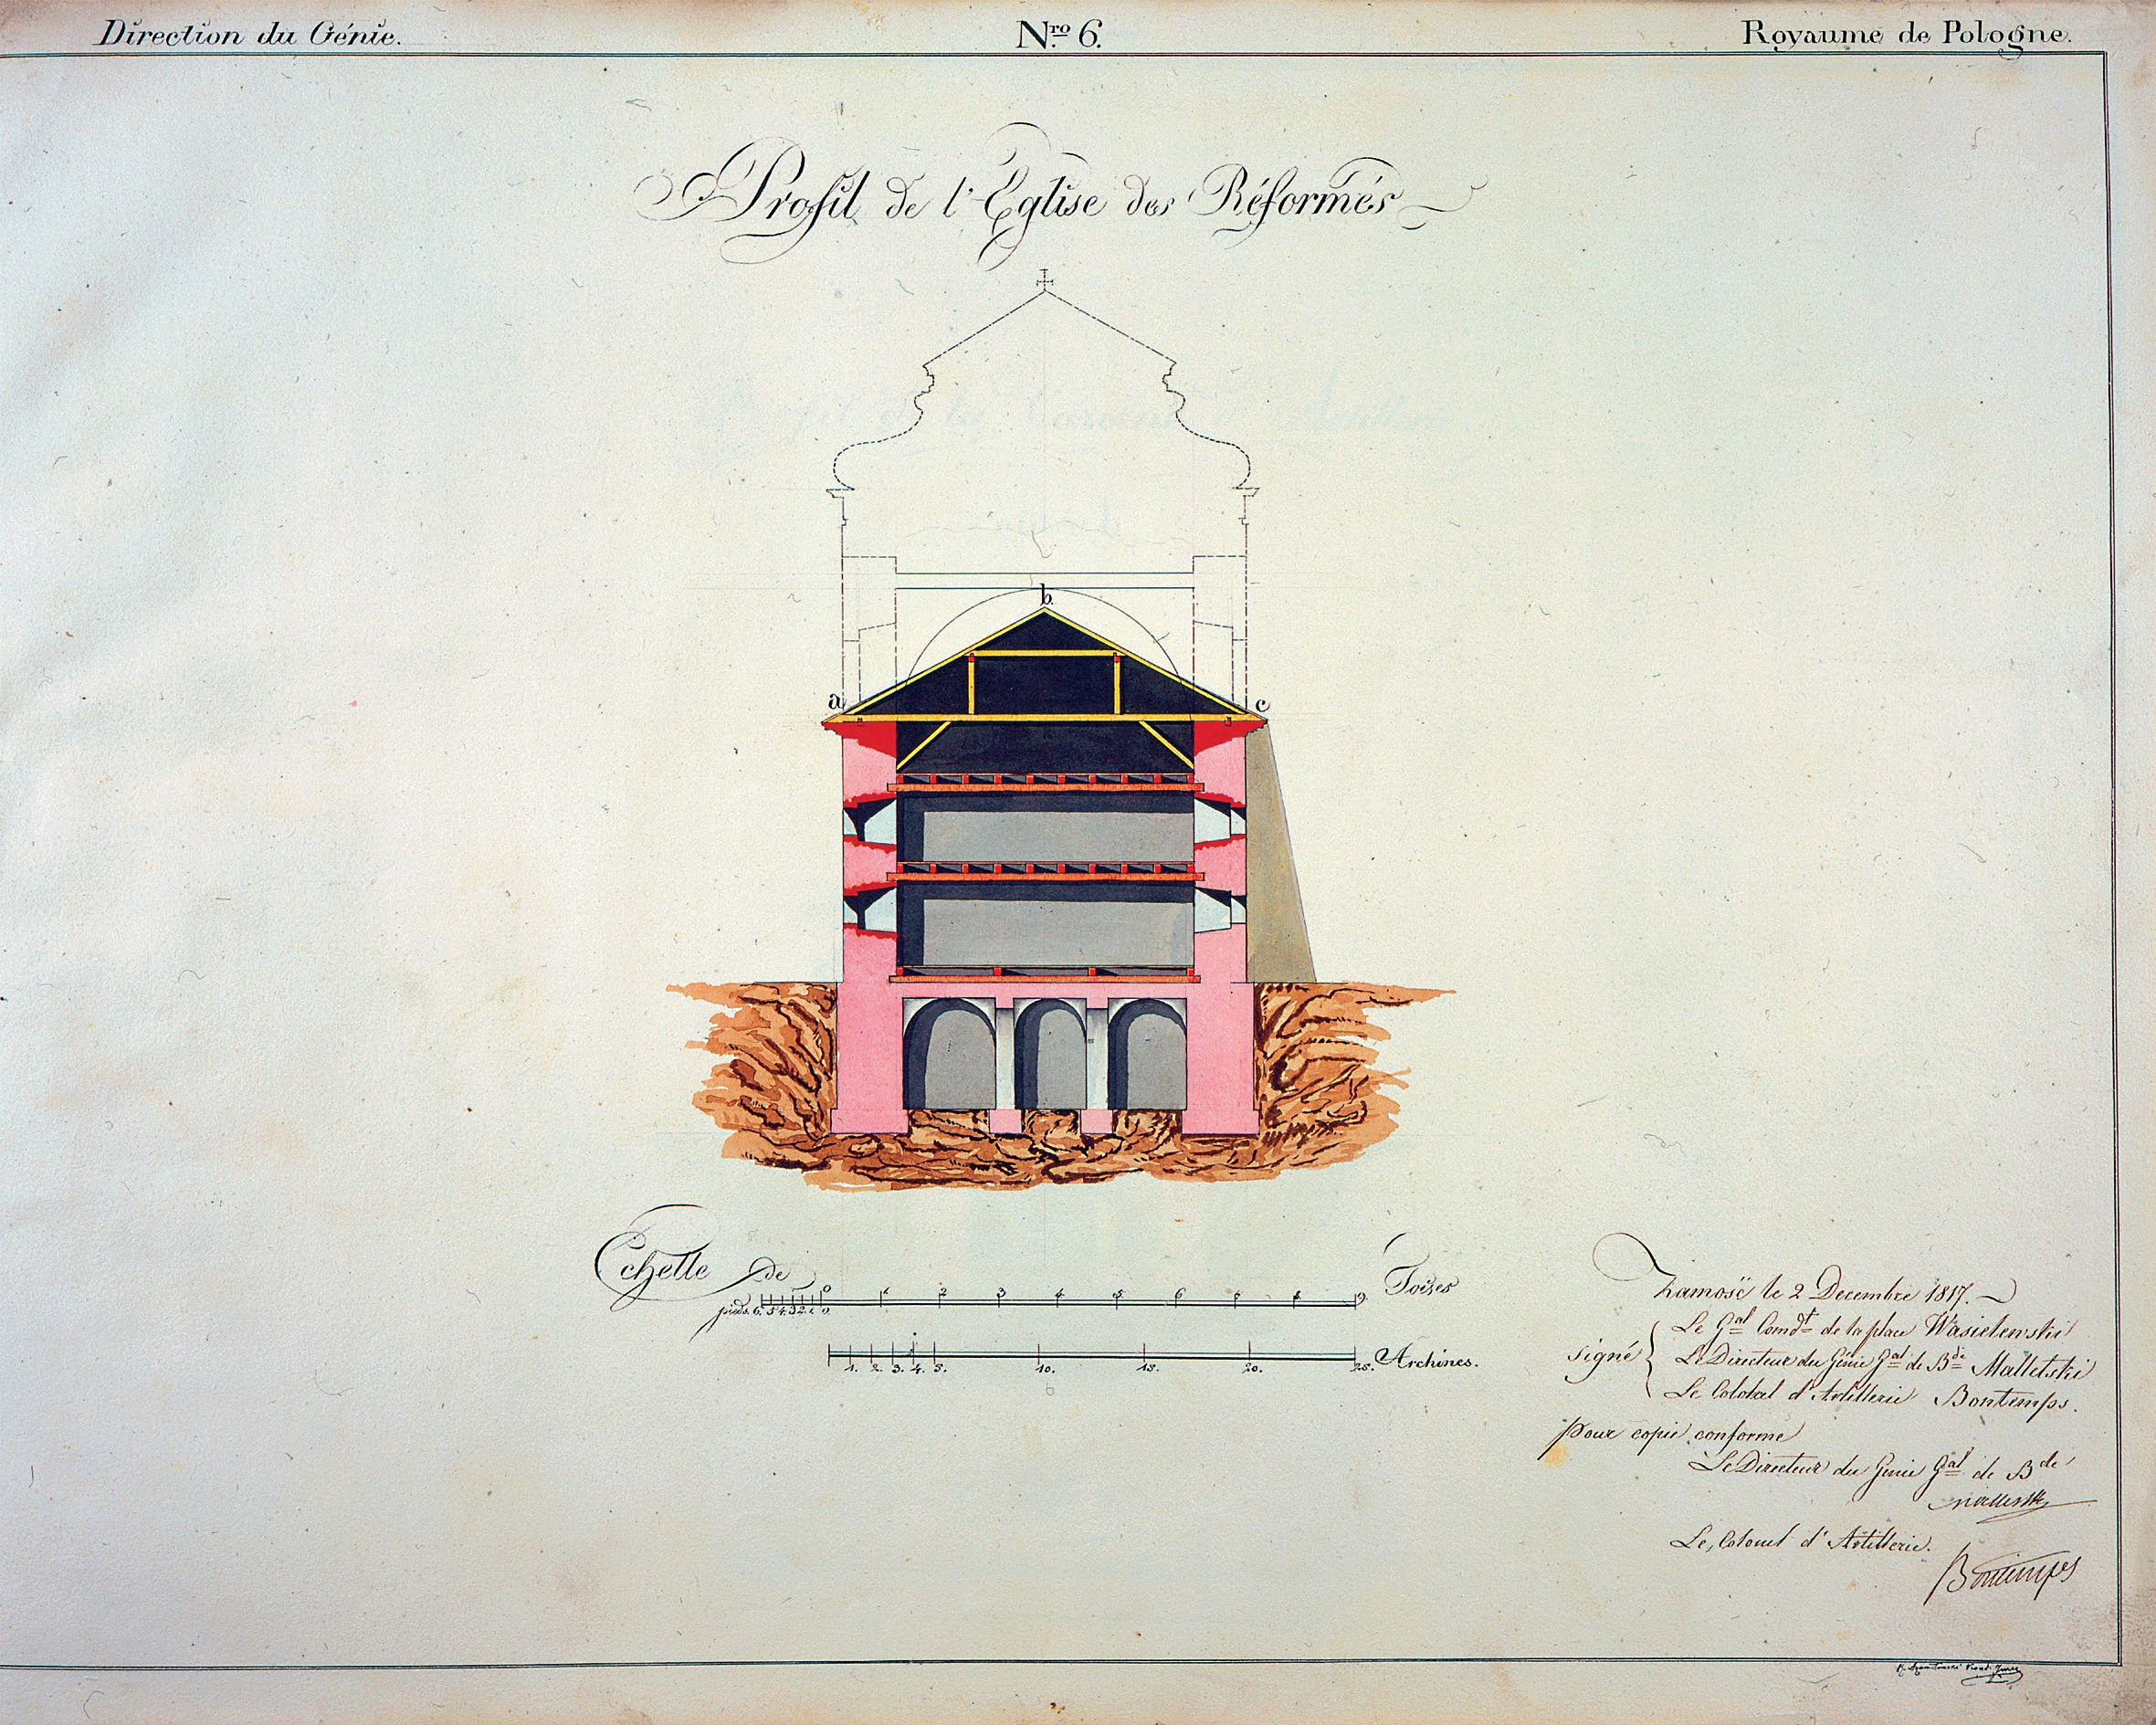 Direction du Génie.
Nro 6.
Royaume de Pologne.
Profil de l'Eglise des Réformés
b.
a
c
Echelle de
Toises
0 1 2 3 4 5 6 7 8 9
pieds. 6. 5 4 3 2 1 0.
1. 2. 3. 4. 5. 10. 15. 20. 25. Archines.
Zamosć le 2 Decembre 1817.
signé
Le Gal Comdt de la place Wasielewski
Le Directeur du Génie Gal de Bde Malletski
Le Colonel d'Artillerie Bontemps.
pour copie conforme
Le Directeur du Genie Gal de Bde
Malletski
Le Colonel d'Artillerie.
Bontemps